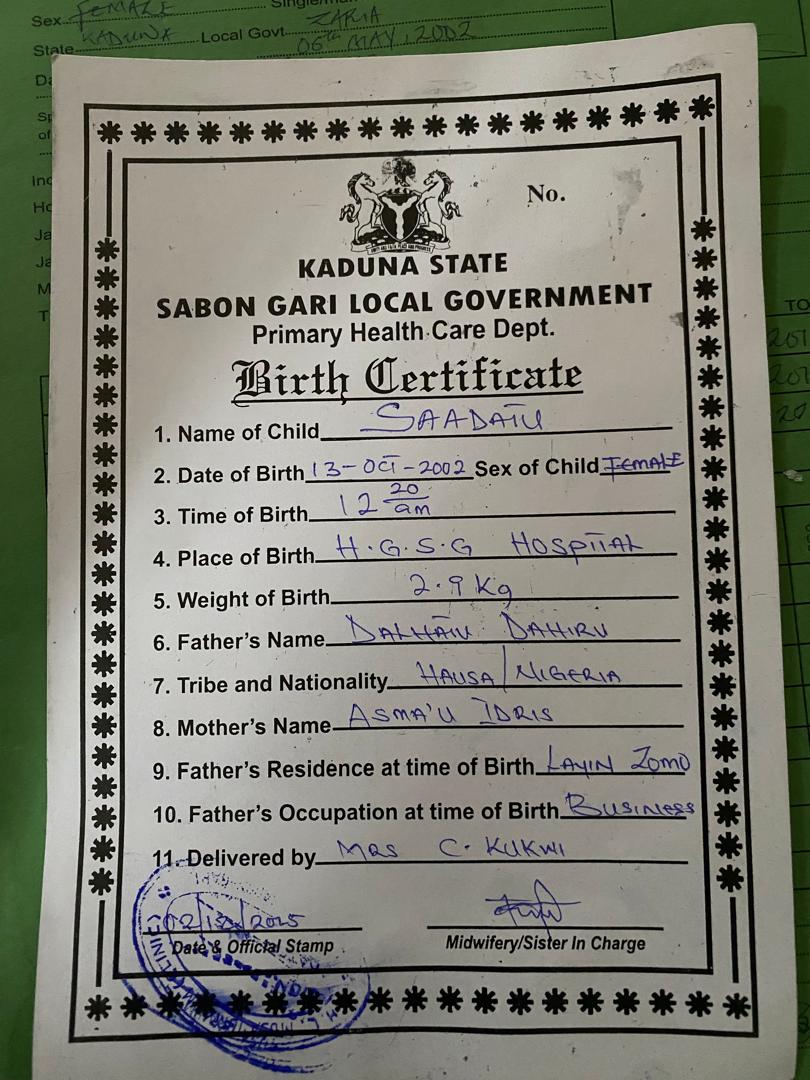 Sex FEMALE
State KADUNA Local Govt ZARIA
06th MAY, 2002
No.
UNITY AND FAITH, PEACE AND PROGRESS
KADUNA STATE
SABON GARI LOCAL GOVERNMENT
Primary Health Care Dept.
Birth Certificate
1. Name of Child SAADATU
2. Date of Birth 13-OCT-2002 Sex of Child FEMALE
3. Time of Birth 12 20/am
4. Place of Birth H.G.S.G HOSPITAL
5. Weight of Birth 2.9 Kg
6. Father's Name DALHATU DAHIRU
7. Tribe and Nationality HAUSA/NIGERIA
8. Mother's Name ASMA'U IDRIS
9. Father's Residence at time of Birth LAYIN ZOMO
10. Father's Occupation at time of Birth BUSINESS
11. Delivered by MRS C. KUKWI
02/12/2025
Date & Official Stamp Midwifery/Sister In Charge
TO